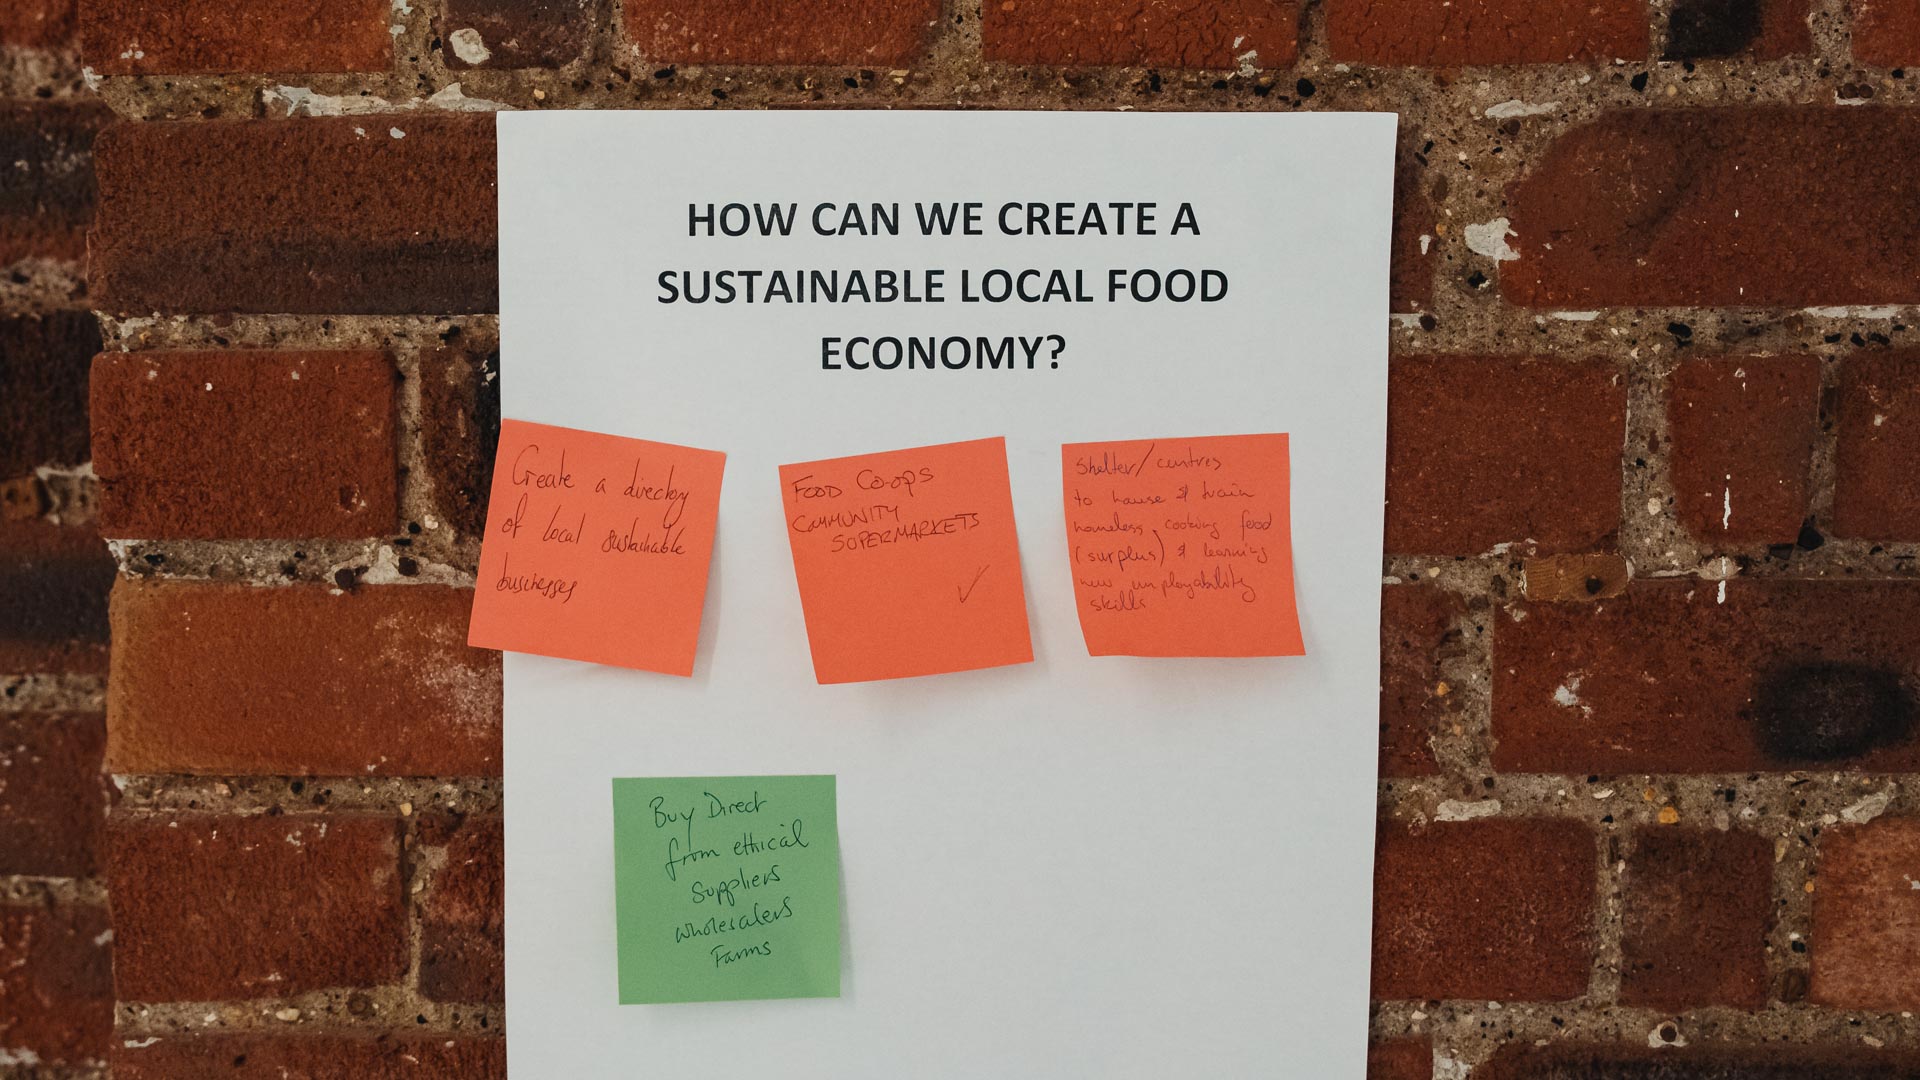 HOW CAN WE CREATE A
SUSTAINABLE LOCAL FOOD
ECONOMY?
Create a directory
of local sustainable
businesses
FOOD CO-OPS
COMMUNITY
SUPERMARKETS
✓
Shelter/centres
to house & train
homeless cooking food
(surplus) & learning
new employability
skills
Buy Direct
from ethical
suppliers
wholesalers
Farms